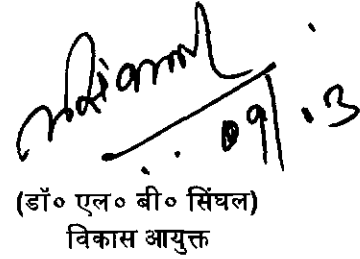 09/.3
(डॉ० एल० बी० सिंघल)
विकास आयुक्त